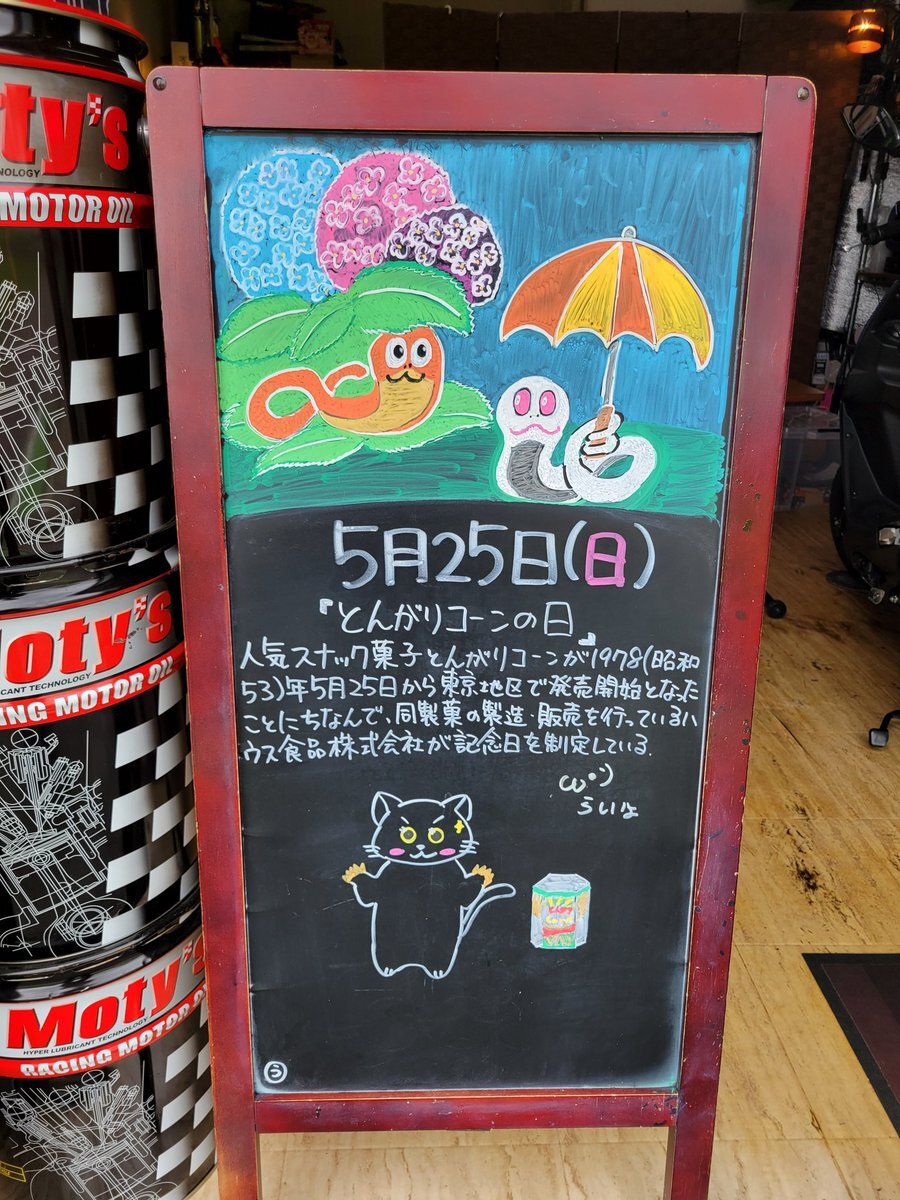 Moty's
TECHNOLOGY
MOTOR OIL
5月25日(日)
『とんがりコーンの日』
人気スナック菓子とんがりコーンが1978(昭和
53)年5月25日から東京地区で発売開始となった
ことにちなんで、同製菓の製造・販売を行っているハ
ウス食品株式会社が記念日を制定している.
ういよ
う
Moty's
LUBRICANT TECHNOLOGY
RACING MOTOR OIL
Moty's
HYPER LUBRICANT TECHNOLOGY
RACING MOTOR OIL